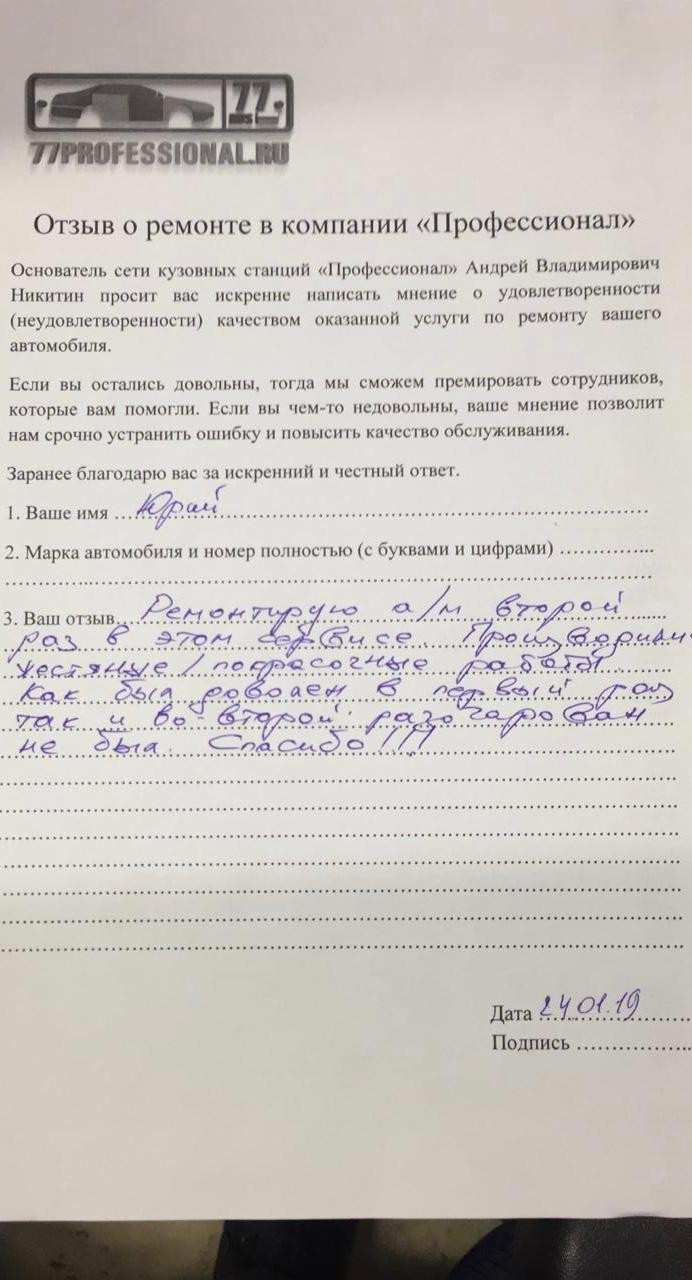 77
77PROFESSIONAL.RU
Отзыв о ремонте в компании «Профессионал»
Основатель сети кузовных станций «Профессионал» Андрей Владимирович
Никитин просит вас искренне написать мнение о удовлетворенности
(неудовлетворенности) качеством оказанной услуги по ремонту вашего
автомобиля.
Если вы остались довольны, тогда мы сможем премировать сотрудников,
которые вам помогли. Если вы чем-то недовольны, ваше мнение позволит
нам срочно устранить ошибку и повысить качество обслуживания.
Заранее благодарю вас за искренний и честный ответ.
1. Ваше имя ...Юрий
2. Марка автомобиля и номер полностью (с буквами и цифрами) ...............
3. Ваш отзыв... Ремонтирую а/м второй
раз в этом сервисе. Производили
жестяные/покрасочные работы.
Как был доволен в первый раз
так и во второй разочарован
не был. Спасибо!!!
Дата 24.01.19
Подпись